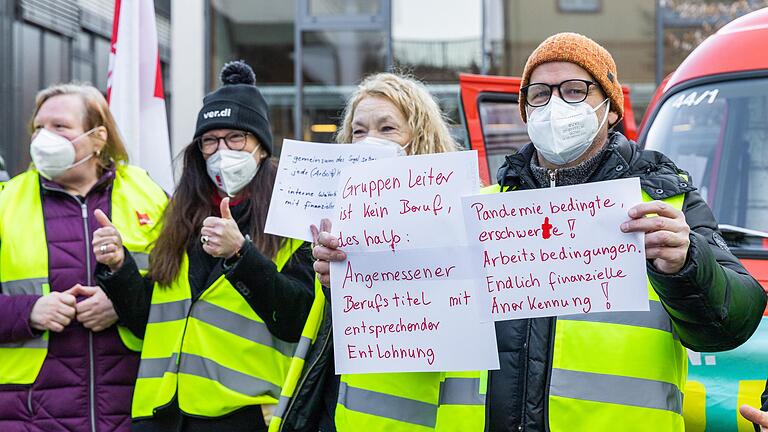 ver.di
- gemeinsam
- jede
- interne
mit finanz.
Gruppen Leiter
ist Kein Beruf,
deshalb:
Angemessener
Berufstitel mit
entsprechender
Entlohnung
Pandemie bedingte,
erschwerte!
Arbeitsbedingungen.
Endlich finanzielle
Anerkennung!
44/1